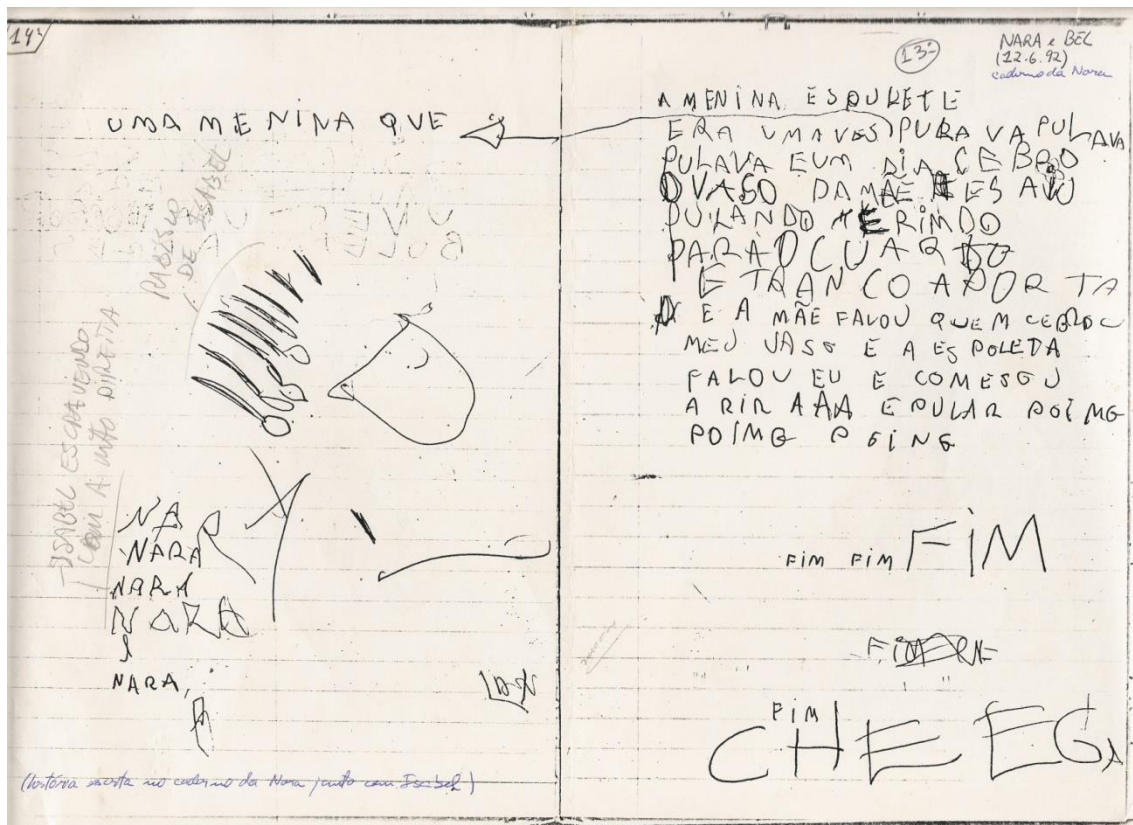 14ª
UMA MENINA QUE
RABISCO
DE ISABEL
ISABEL ESCREVENDO
COM A MÃO DIREITA
NA
NARA
NARA
NARA
NARA,
(história escrita no caderno da Nara junto com Isabel)
13ª
NARA e BEL
(12.6.92)
caderno da Nara
A MENINA ESPULETE
ERA UMAVES PURA VA PULAVA
PULAVA EUM DIA CEBRO
OVASO DAMÃE E ES AIU
PULANDO E RINDO
PARAOCUARTO
E TRANCO APORTA
E A MÃE FALOU QUEM CEBROU
MEU VASO E A ESPOLETA
FALOU EU E COMESOU
A RIR AAA E PULAR POIMG
POIMG POING
FIM FIM FIM
FIM
CHEEGA